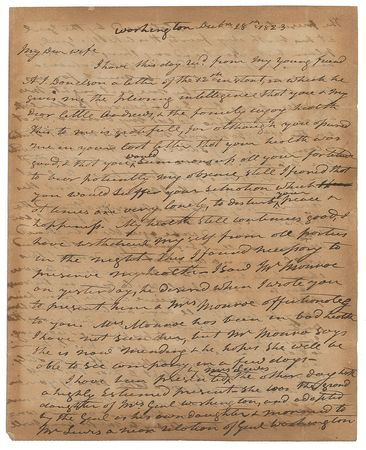 Washington Decbr 18th 1823
My Dear wife
I have this day recd from my young friend
A J Donelson a letter of the 12th instant in which he
gives me the pleasing intelligence that you & my
Dear little Andrew & the family enjoy health
This to me is grateful, for although you
me in your last letter that your health was
good, & that you would all your fortitude
to bear patiently my absence, still I feared that
you would suffer your situation which
at times are very lonely to disturb your peace &
happiness. My health still continues good, I
have withdrawn myself from all parties
in the night this I found necessary to
preserve my health I saw Mr Monroe
on yesterday, he desired when I wrote you
to present him & Mrs Monroe affectionately
to you. Mrs Monroe has been in bad health
I have not seen her, but Mr Monroe says
she is now mending & he hopes she will be
able to see company in a few days—
I have been presented by Mrs Lewis the other day with
a highly esteemed present she was the grand
daughter of Mrs Genl Washington, and adopted
by the Genl as his own daughter & married to
Mr Lewis a near relation of Genl Washington